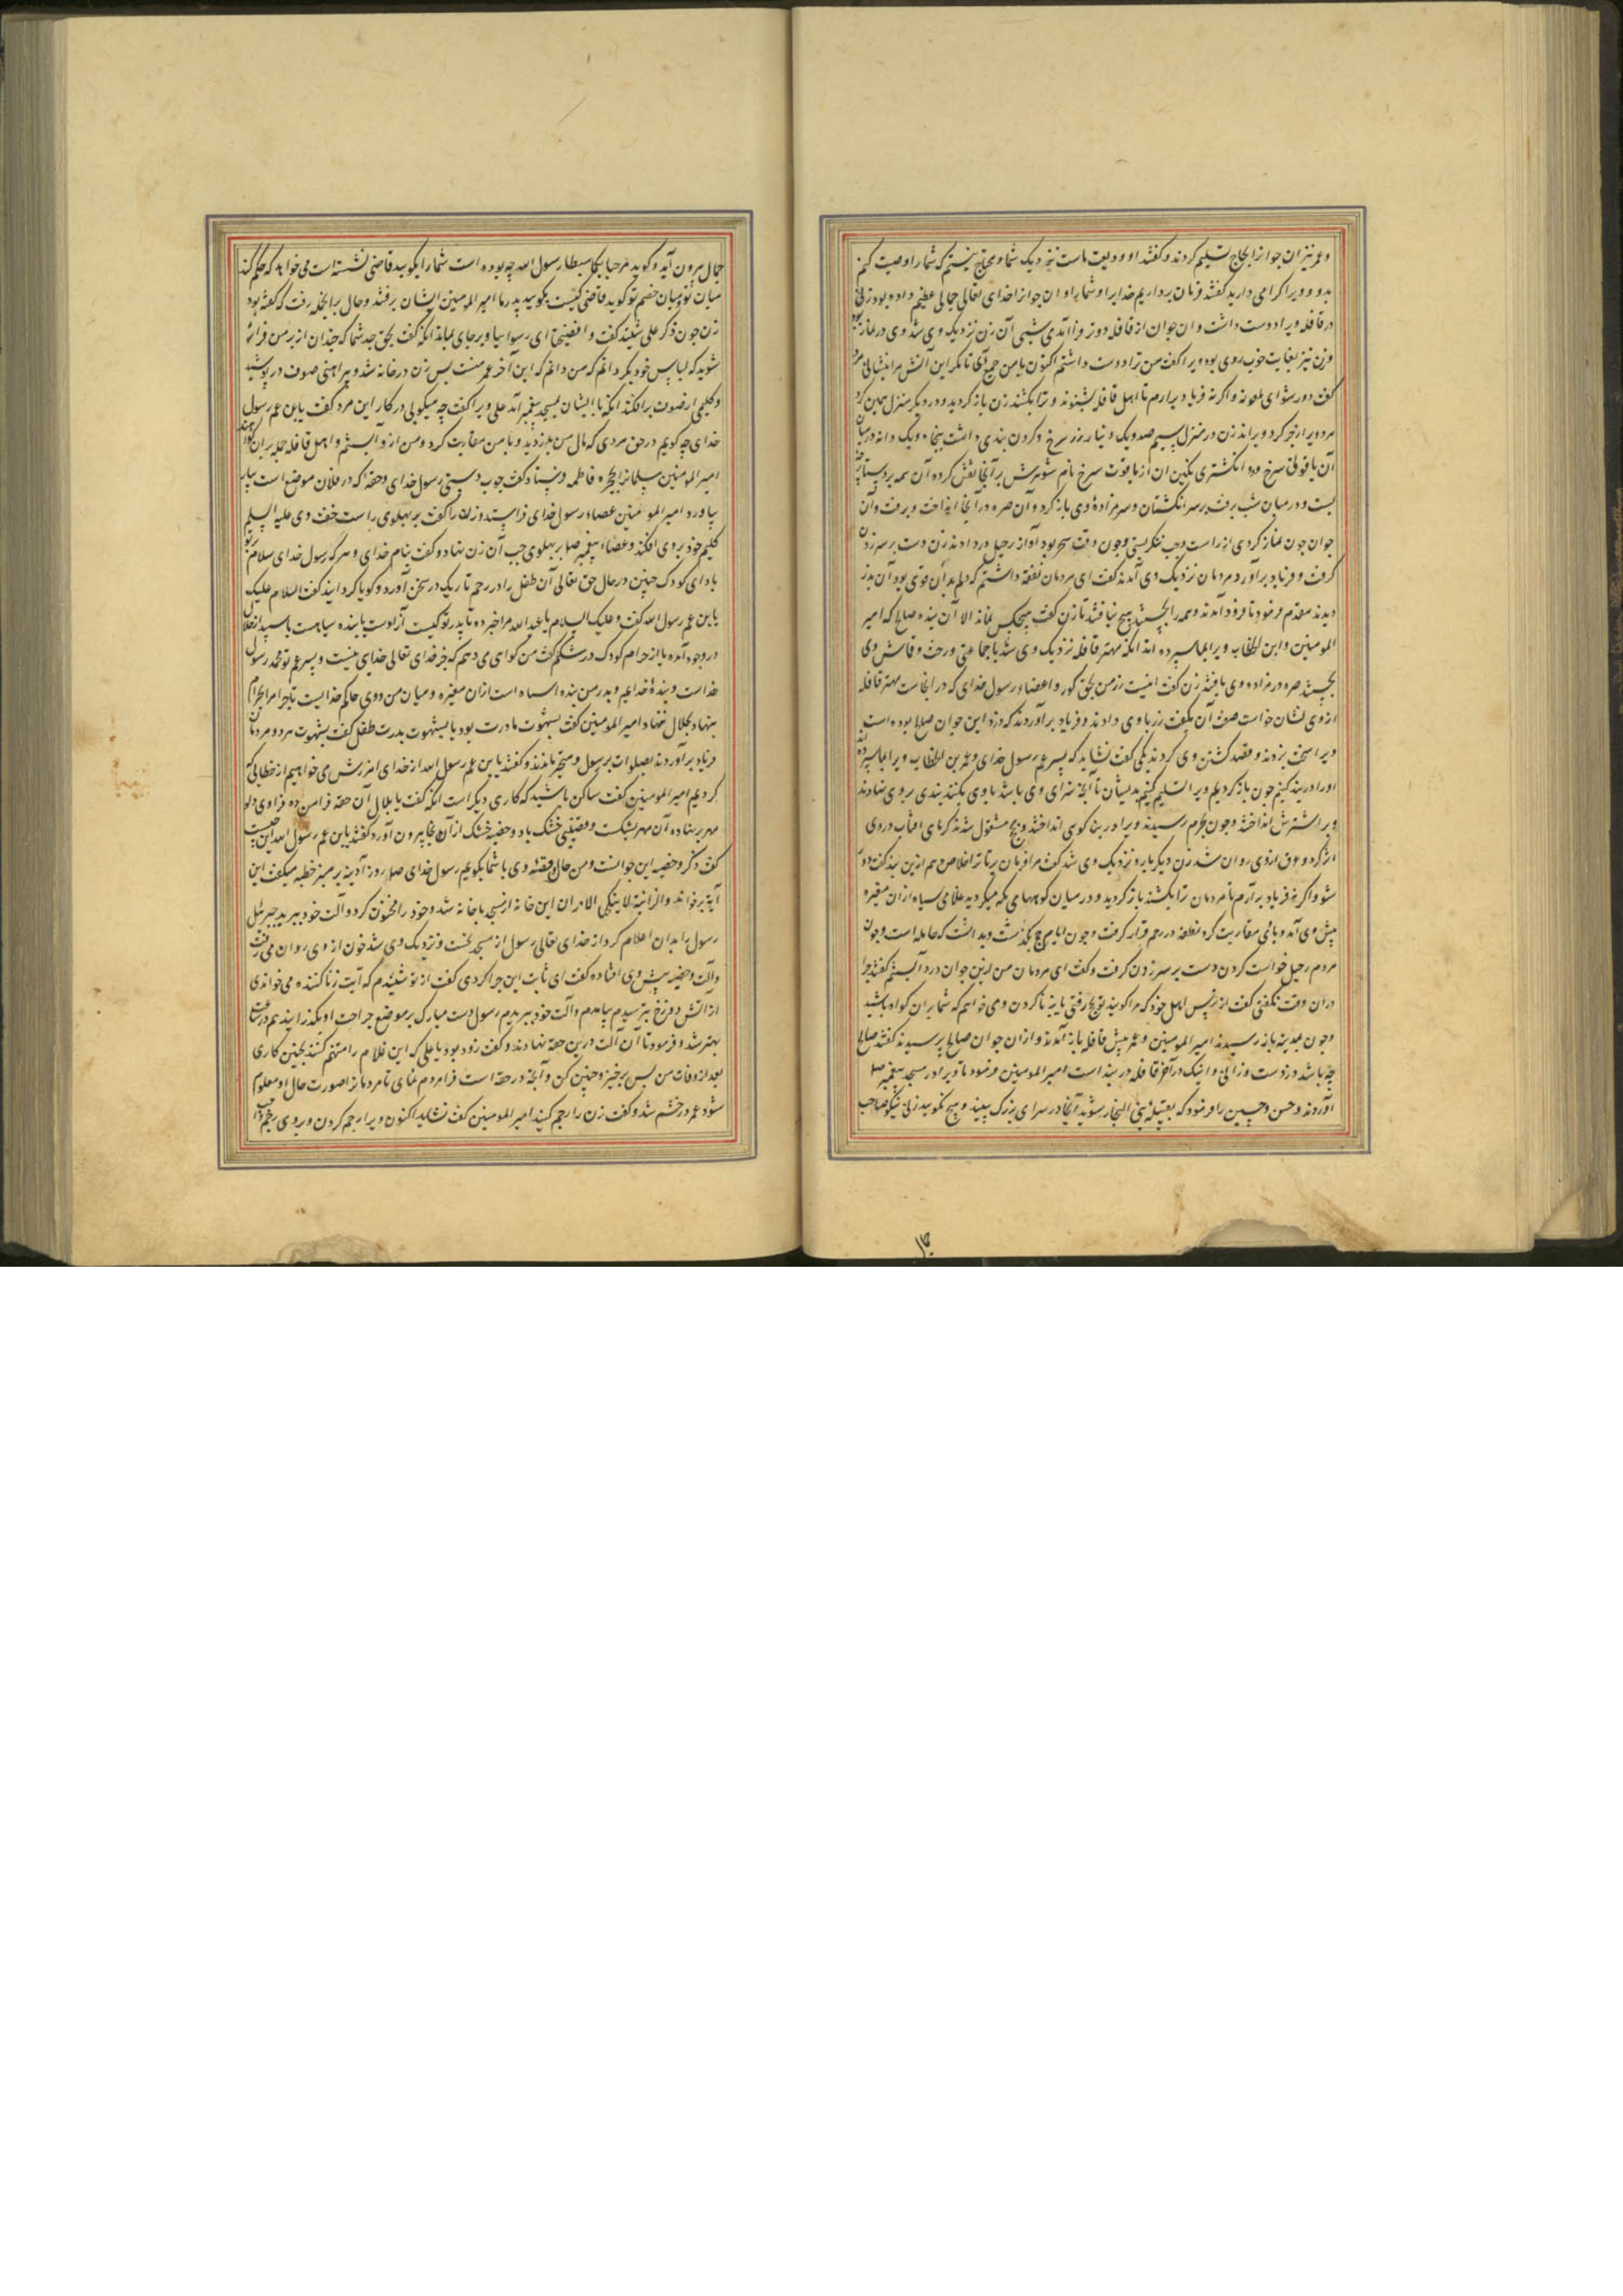 و عمر نیز ان جوانرا بحجاج تسلیم کردند و کفتند او ودیعت ماست نزدیک شما و محتاج نیستیم که شمارا وصیت کنیم
بدو و ویرا کرامی دارید کفتند فرمان برداریم خدایرا و شمارا و ان جوانرا خدای تعالی جمالی عظیم داده بود زنی
در قافله ویرا دوست داشت و ان جوان از قافله دورتر فرا آمدی شبی آن زن نزدیک وی شد وی در نماز بود
وزن نیز بغایت خوب روی بود ویرا کفت من ترا دوست داشتم اکنون با من جمع آی تا مکر این آتش مرا بنشانی مرد
کفت دور شو ای ملعونه و اکر نه فریاد برارم تا اهل قافله بشنوند و ترا بکشند زن باز کردید و در دیکر منزل همین کرد
مرد ویرا زجر کرد و براند زن در منزل سیم صد و یک دینار زر سرخ و کردن بندی داشت پنجاه و یک دانه در میان
آن یاقوتی سرخ و دو انکشتری نکین ان از یاقوت سرخ نام شوهرش بر آنجا نقش کرده آن همه بر دستارچه
بست و در میان شب برفت بر سر انکشتان و سر مزاده وی باز کرد و آن صره در آنجا انداخت و برفت و آن
جوان چون نماز کردی از راست و چپ ننکریستی و چون وقت سحر بود آواز رحیل در دادند زن دست بر سر زدن
کرفت و فریاد برآورد مردمان نزدیک وی آمدند کفت ای مردمان نفقه داشتم که دلم بدان قوی بود آن بدز
دیدند مقدم فرمود تا فرود آمدند و همه را بجستند هیچ نیافتند تا زن کفت هیچکس نمانده الا آن بنده صالح که امیر
المومنین و ابن الخطاب ویرا بما سپرده اند انکه مهتر قافله نزدیک وی شد با جماعتی و رخت و قماش وی
بجستند صره در مزاده وی یافتند زن کفت اینست زر من بحق کور و اعضاء رسول خدای که در انجاست مهتر قافله
از وی نشان خواست صفت آن بکفت زر باوی دادند و فریاد برآوردند که دزد این جوان صالح بوده است
ویرا سخت بزدند و قصد کشتن وی کردند یکی کفت نشاید که پسر عم رسول خدای و عمر بن الخطاب ویرا بما سپرده اند
اورا در بند کنیم چون باز کردیم ویرا تسلیم کنیم بدیشان تا آنچه سزای وی باشد باوی بکنند بندی بر وی نهادند
و بر اشترش انداختند و چون بحرم رسیدند ویرا در بنا کوی انداختند و بحج مشغول شدند کرمای افتاب در وی
اثر کرد و عرق ازوی روان شد زن دیکر باره نزدیک وی شد کفت مرا فرمان بر تا ترا خلاص دهم ازین بند کفت دور
شو و اکر نه فریاد برآرم تا مردمان ترا بکشند باز کردید و در میان کوههای مکه میکردید غلامی سیاه ازان مغیره
پیش وی آمد و با وی مقاربت کرد نطفه در رحم قرار کرفت و چون ایام حج بکذشت و بدانست که حامله است و چون
مردم رحیل خواست کردن دست بر سر زدن کرفت و کفت ای مردمان من ازین جوان دزد آبستنم کفتند چرا
دران وقت نکفتی کفت از ترس اهل خود که مرا کویند تو بحج رفتی یا بزنا کردن و می خواهم که شما بران کواه باشید
و چون بمدینه باز رسیدند امیر المومنین و عمر پیش قافله باز آمدند و ازان جوان صالح پرسیدند کفتند صالح
چه باشد دزدست و زانی و اینک در آخر قافله در بند است امیر المومنین فرمود تا ویرا در مسجد پیغمبر صلعم
آوردند و حسن و حسین را فرمود که بقبیله بنی النجار شوید آنجا در سرای بزرک ببینید و هیچ نکویید زنی نیکو صاحب
جمال بیرون آید و کوید مرحبا بکما سبطا رسول الله چه بوده است شمارا بکویید قاضی نشسته است می خواهد که حکم کند
میان تو و میان خصم تو کوید قاضی کیست بکویید پدر ما امیر المومنین ایشان برفتند و حال بر انجمله رفت که کفته بود
زن چون ذکر علی شنید کفت وا فضیحتا ای رسوا بیا و بر جای بماند انکه کفت بحق جد شما که چندان از بر من فراتر
شوید که لباس خود بکردانم که من دانم که این آخر عمر منست پس زن در خانه شد و پیراهنی صوف در پوشید
و کلیمی از صوف برافکند انکه با ایشان بمسجد پیغمبر آمد علی ویرا کفت چه میکویی در کار این مرد کفت یا بن عم رسول
خدای چه کویم در حق مردی که مال من بدزدید و با من مقاربت کرد و من ازو آبستنم و اهل قافله جمله بران کواهند
امیر المومنین سلمانرا بحجره فاطمه فرستاد کفت چوب دستی رسول خدای و حقه که در فلان موضع است بیار
بیاورد امیر المومنین عصاء رسول خدای فراستد و زن را کفت بر پهلوی راست خفت وی علیه السلم
کلیم خود بر وی افکند و عصاء پیغمبر صلعم بر پهلوی چپ آن زن نهاد و کفت بنام خدای و سر که رسول خدای سلام بر تو
باد ای کودک جنین در حال حق تعالی آن طفل را در رحم تاریک در سخن آورد و کویا کردانید کفت السلام علیک
یا بن عم رسول الله کفت و علیک السلام یا عبد الله مرا خبر ده تا پدر تو کیست آزادست یا بنده سیاهست یا سپید از حلال
در وجود آمده یا از حرام کودک در شکم کفت من کوای می دهم که جز خدای تعالی خدای نیست و پسر عم تو محمد رسول
خداست و بنده خدایم و پدر من بنده اسیاه است ازان مغیره و میان من و وی حاکم خدایست تا چرا مرا بحرام
بنهاد بحلال ننهاد امیر المومنین کفت بشهوت مادرت بود یا بشهوت پدرت طفل کفت بشهوت هر دو مردمان
فریاد برآوردند بصلوات بر رسول و متحیر ماندند و کفتند یا بن عم رسول الله از خدای امرزش می خواهیم از خطایی که
کردیم امیر المومنین کفت ساکن باشید که کاری دیکر است انکه کفت یا بلال آن حقه فرا من ده فرا وی داد
مهر بر نهاده آن مهر بشکست و قضیبی خشک یاد و خصیه خشک از آنجا بیرون آورد کفتند یا بن عم رسول الله این چیست
کفت ذکر و خصیه این جوانست و من حال و قصه وی با شما بکویم رسول خدای صلعم روز آدینه بر منبر خطبه میکفت این
آیة برخواند و الزانیة لا ینکحها الا زان این خانه از مسجد با خانه شد و خود را مختون کرد و آلت خود ببرید جبرئیل
رسول را بدان اعلام کرد از خدای تعالی رسول از مسجد بخست و نزدیک وی شد خون از وی روان می رفت
و آلت و خصیه پیش وی افتاده کفت ای ثابت این چرا کردی کفت از تو شنیدم که آیت زنا کننده می خواندی
از آتش دوزخ بترسیدم بیامدم و آلت خود ببریدم رسول دست مبارک بر موضع جراحت او بکذرانید هم در ساعت
بهتر شد و فرمود تا آن آلت درین حقه نهادند و کفت زود بود یا علی که این غلام را متهم کنند بچنین کاری
بعد از وفات من پس برخیز و چنین کن و آنچه در حقه است فرا مردم نمای تا مردمانرا صورت حال او معلوم
شود عمر در خشم شد و کفت زن را رجم کنید امیر المومنین کفت نشاید اکنون ویرا رجم کردن و بر وی رجم